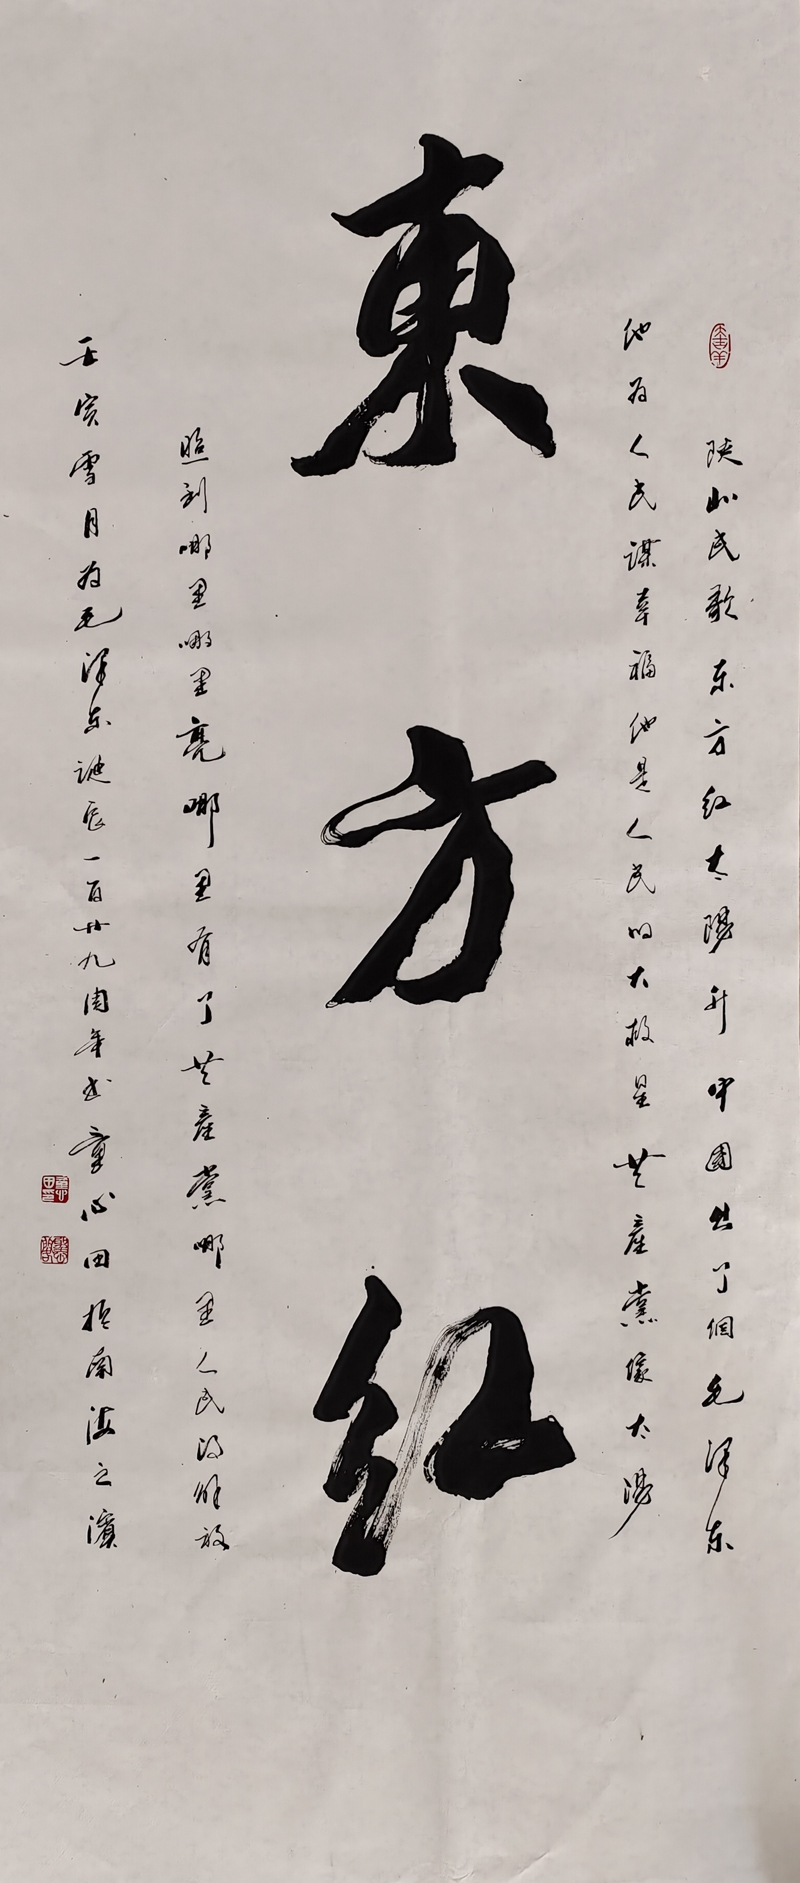 陕北民歌 东方红太陽升中國出了個毛泽东
他为人民谋幸福他是人民的大救星共產黨像太陽
東方红
照到哪里哪里亮哪里有了共產黨哪里人民得解放
壬寅雪月为毛泽东诞辰一百廿九周年书童心田於南海之濱